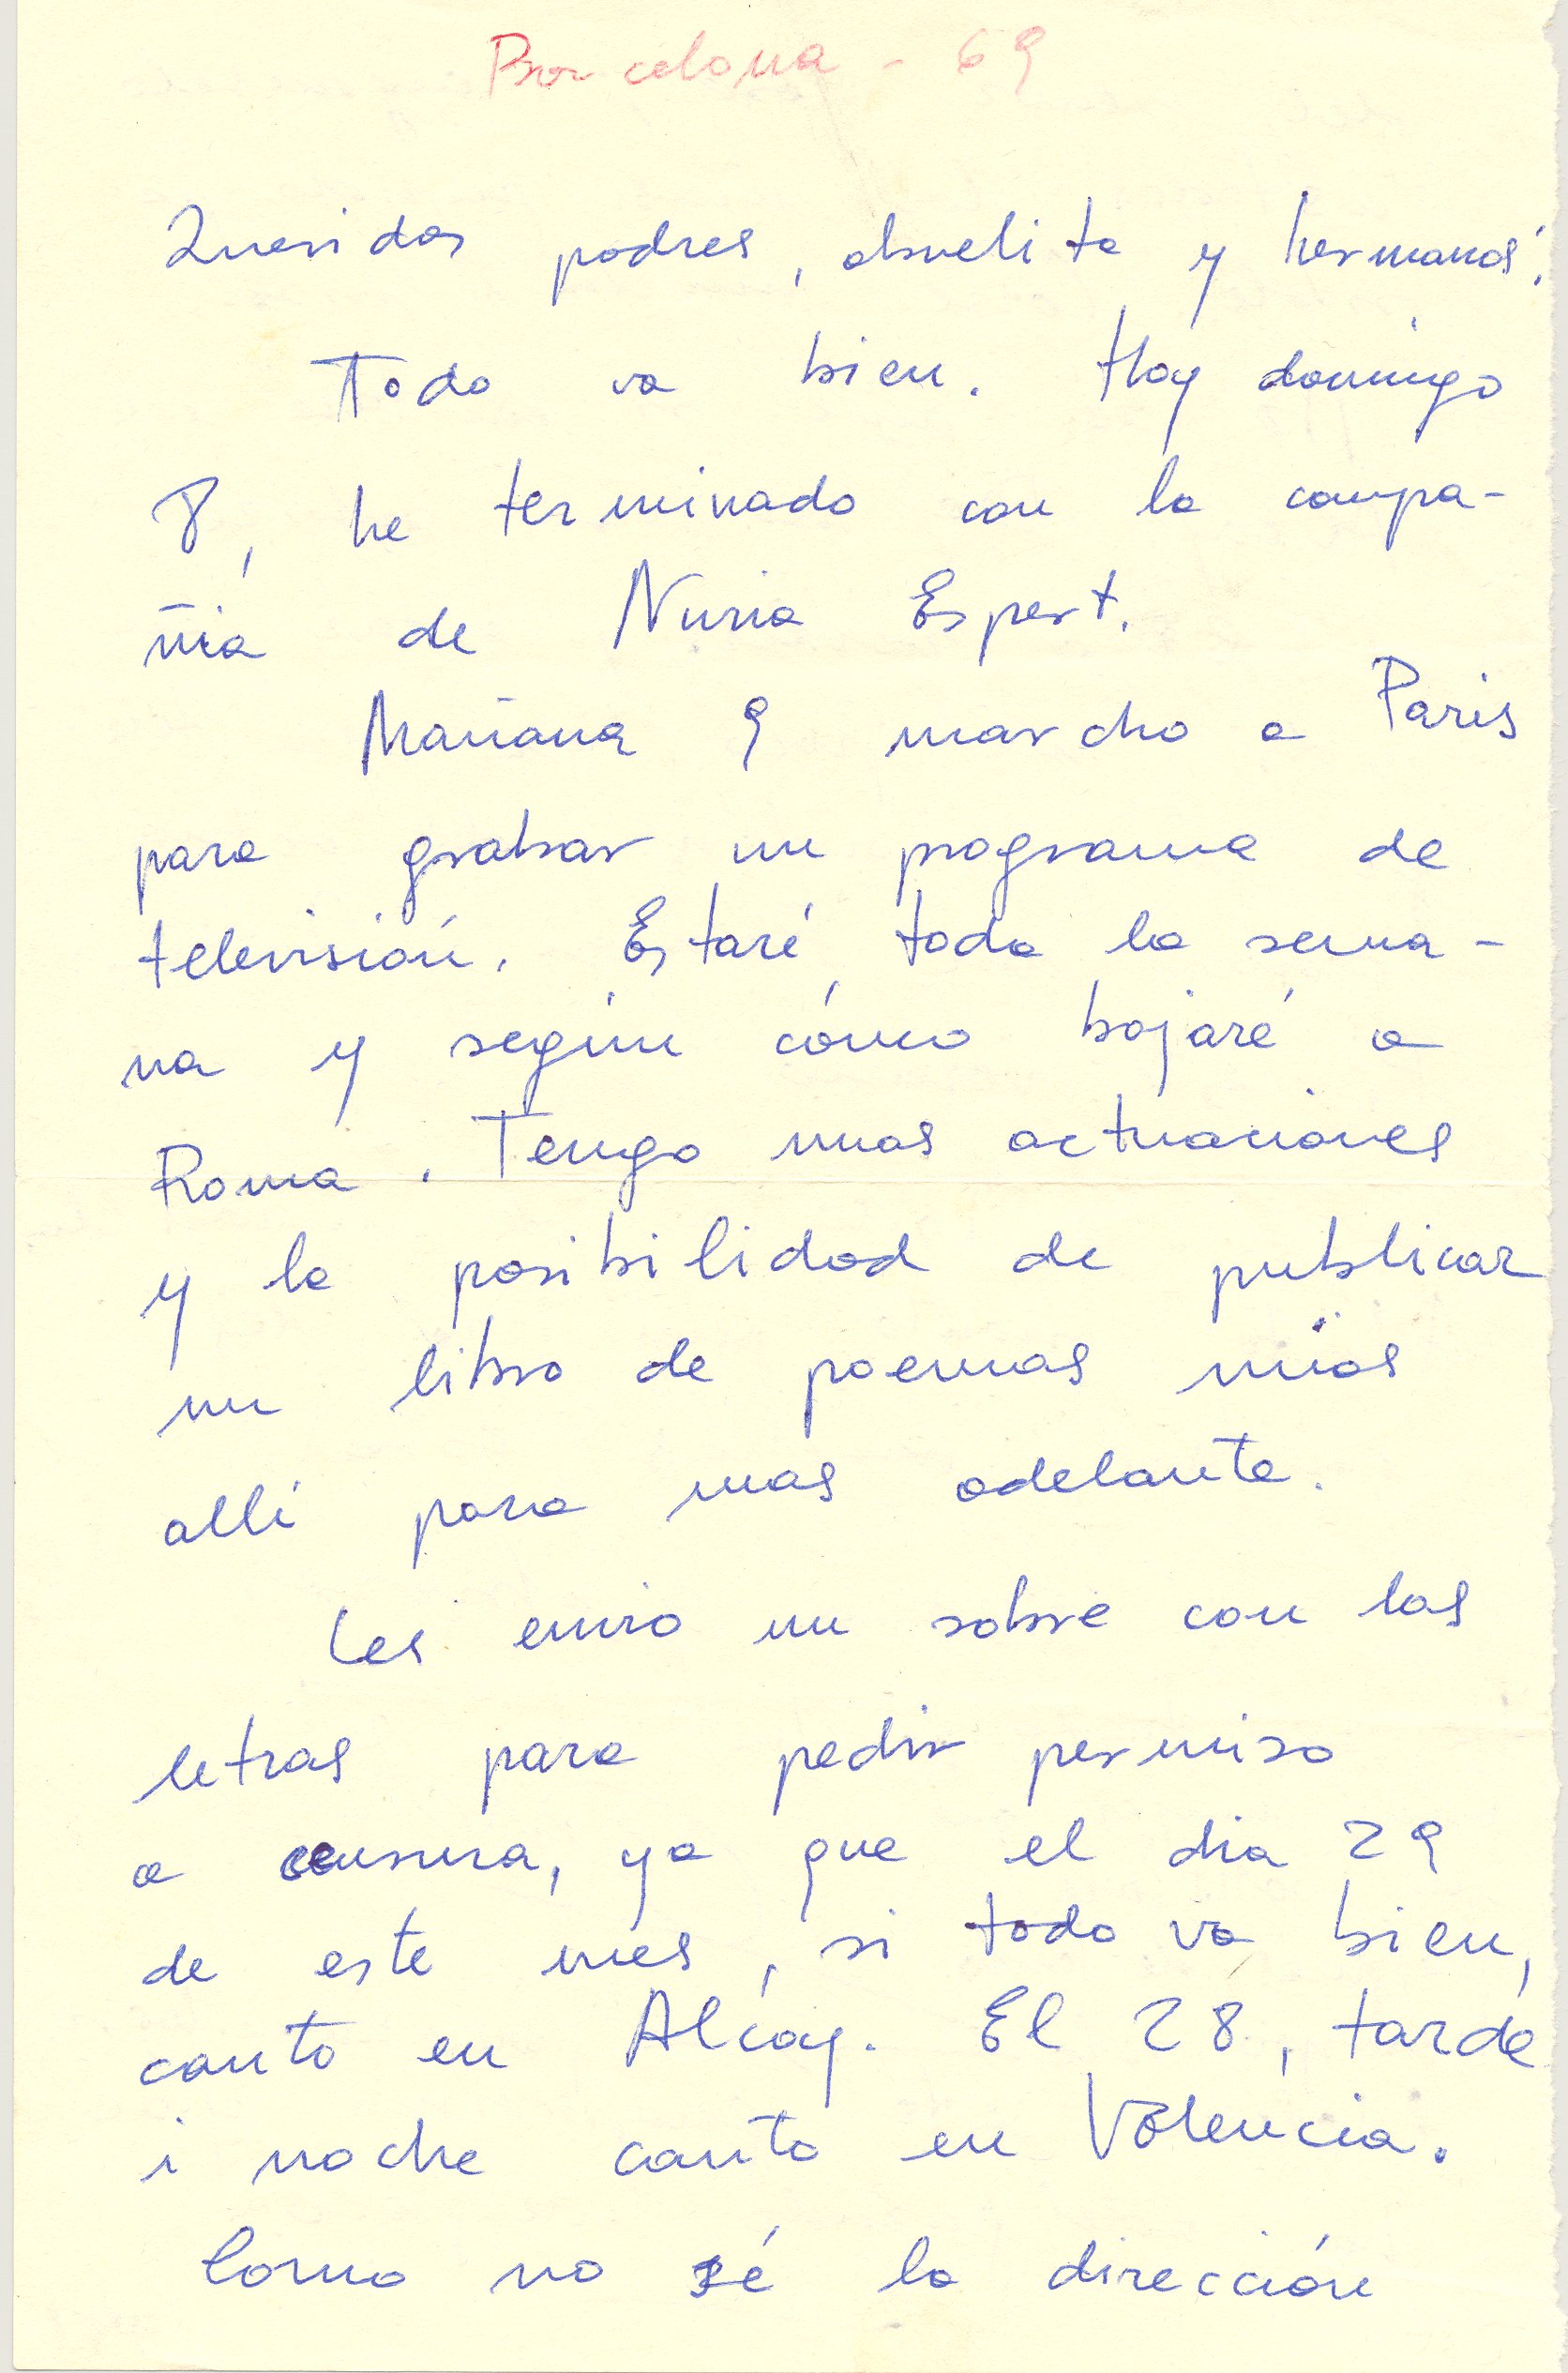 Barcelona - 69
Queridos padres, abuelita y hermanos:
Todo va bien. Hoy domingo
8, he terminado con la compa-
ñia de Nuria Espert.
Mañana 9 marcho a Paris
para grabar un programa de
televisión. Estaré toda la sema-
na y según cómo bajaré a
Roma. Tengo unas actuaciones
y la posibilidad de publicar
un libro de poemas míos
allí para mas adelante.
Les envio un sobre con las
letras para pedir permiso
a censura, ya que el dia 29
de este mes, si todo va bien,
canto en Alcoy. El 28, tarde
i noche canto en Valencia.
Como no sé la dirección